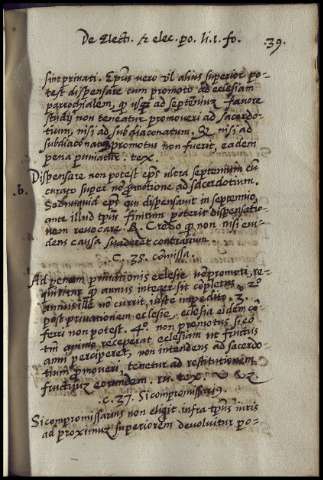 De Electi. & elec. po. li. i. fo. 39.
sint privati. Epus vero vl alius superior po-
test dispensare cum promoto ad eclesiam
parrochialem, q usq ad septennium favore
studij non teneatur promoveri ad sacerdo-
tium, nisi ad subdiaconatum, & nisi ad
subdiaconatum promotus non fuerit, eadem
pena puniatur. tex.
.b. Dispensare non potest eps ultra septennium cu
curato super promotione ad sacerdotium.
eps qui dispensavit in septennio,
ante illud tps finitum poterit dispensatio-
nem revocare. R. Credo q non nisi evi-
dens caussa suaderet contrarium.
C. 35. comissa.
Ad penam privationis eclesie re-
q annus integer sit completus. 2°
non currit iuste impedito. 3.
post privationem eclesie, eclesia eidem co-
ferri non potest. 4°. non promotus si eo
animo receperat eclesiam ut fructus
anni perciperet, non intendens ad sacerdo-
tium promoveri, tenetur ad restitutionem
fructuum eorundem. tex.
.c. 37. Si compromissarij.
Si compromissarius non eligit infra tps iuris
ad proximum superiorem devolvitur po-